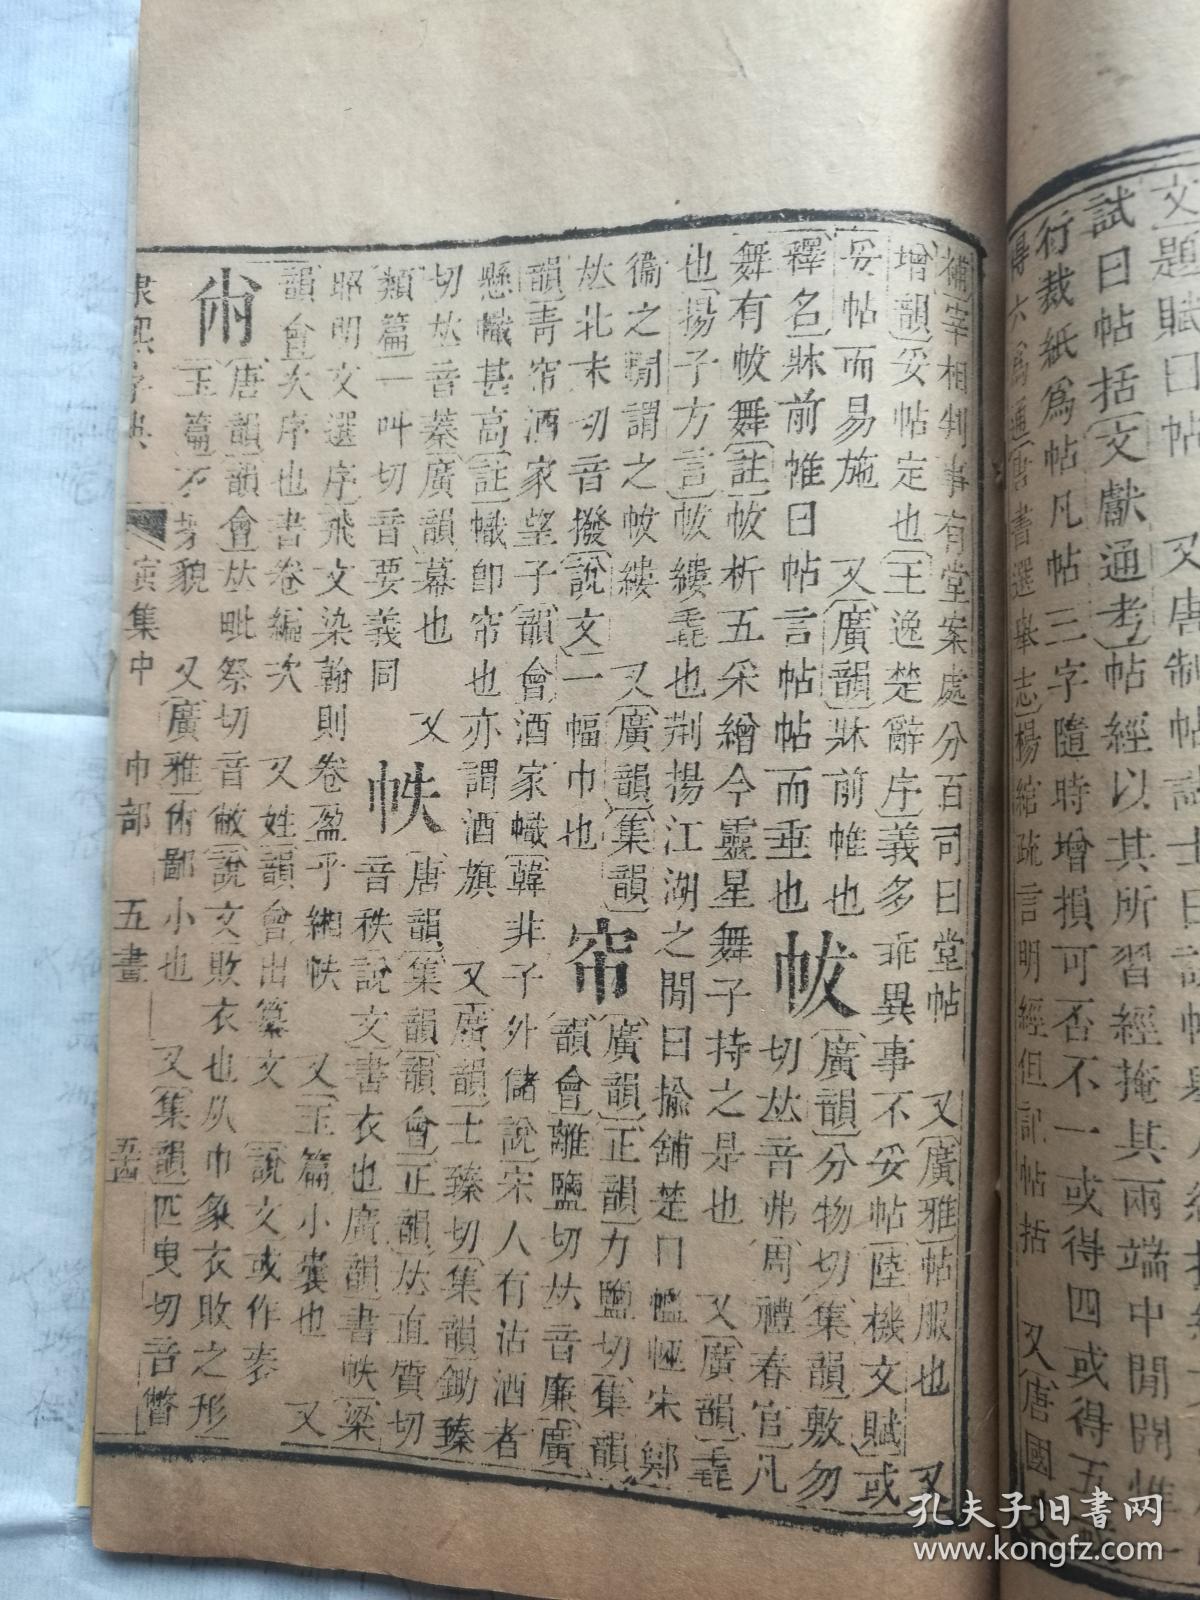 試曰帖括文獻通考帖經以其所習經掩其兩端中閒開惟一
行裁紙爲帖凡帖三字隨時增損可否不一或得四或得五或
得六爲通唐書選舉志楊綰疏言明經但記帖括 又唐國史
補宰相判事有堂案處分百司曰堂帖 又廣雅帖服也 又
增韻妥帖定也王逸楚辭序義多乖異事不妥帖陸機文賦或
妥帖而易施 又廣韻牀前帷也
釋名牀前帷曰帖言帖帖而垂也
帗
廣韻分物切集韻敷勿
切𠀤音弗周禮春官凡
舞有帗舞註帗析五采繒今靈星舞子持之是也 又廣韻毳
也揚子方言帗縷毳也荆揚江湖之閒曰揄鋪楚曰極宋鄭
衞之閒謂之帗縷 又廣韻集韻
𠀤北末切音撥說文一幅巾也
帘
廣韻正韻力鹽切集韻
韻會離鹽切𠀤音廉廣
韻靑帘酒家望子韻會酒家幟韓非子外儲說宋人有沽酒者
懸幟甚高註幟卽帘也亦謂酒旗 又廣韻士臻切集韻鋤臻
切𠀤音蓁廣韻幕也 又
類篇一叫切音要義同
帙
唐韻集韻韻會正韻𠀤直質切
音秩說文書衣也廣韻書帙梁
昭明文選序飛文染翰則卷盈乎緗帙 又玉篇小囊也 又
韻會次序也書卷編次 又姓韻會出纂文 說文或作袠
㡀
唐韻韻會𠀤毗祭切音敝說文敗衣也从巾象衣敗之形
玉篇不貌 又廣雅㡀鄙小也 又集韻匹曳切音瞥
康熙字典 寅集中 巾部 五畫
孔夫子旧書网
www.kongfz.com